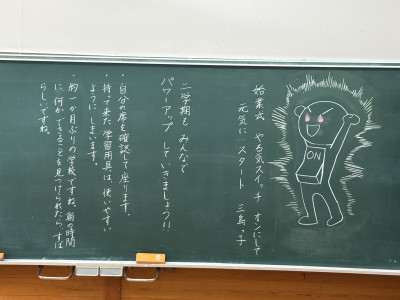 ON
始業式 やる気スイッチ オンにして
元気に スタート 三島
子
二学期も みんなで
パワーアップ していきましょう!!
・自分の席を確認して座ります。
・持って来た学習用具は、使いやすい
ようにしまいます。
・約一か月ぶりの学校ですね。朝の時間
に何かできることを見つけられたら すば
らしいですね。